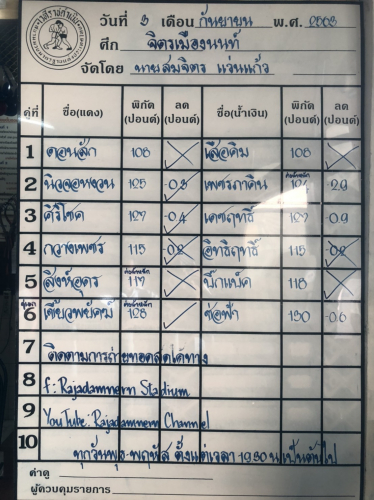 วันที่ 3 เดือน กันยายน พ.ศ. 2563
ศึก จิตรเมืองนนท์
จัดโดย นายสมจิตร แว่นแก้ว
คู่ที่ ชื่อ(แดง) พิกัด (ปอนด์) ลด (ปอนด์) ชื่อ(น้ำเงิน) พิกัด (ปอนด์) ลด (ปอนด์)
1 ดอนสัก 108 เสือคิม 108
2 125 -0.3 เพชรภาคิน -2.9
3 ศิริโชค 127 -0.4 เดชฤทธิ์ 127 -0.9
4 กวางเพชร 115 -0.2 อิทธิฤทธิ์ 115 -0.2
5 สิงห์อุดร 117 บิ๊กแบ๊ค 118
6 เขี้ยวพยัคฆ์ 128 ช่อฟ้า 130 -0.6
7 ติดตามการถ่ายทอดสดได้ทาง
8 f: Rajadamnern Stadium
9 YouTube: Rajadamnern Channel
10 ทุกวันพุธ-พฤหัส ตั้งแต่เวลา 19.30 น เป็นต้นไป
ค่าดู
ผู้ควบคุมรายการ